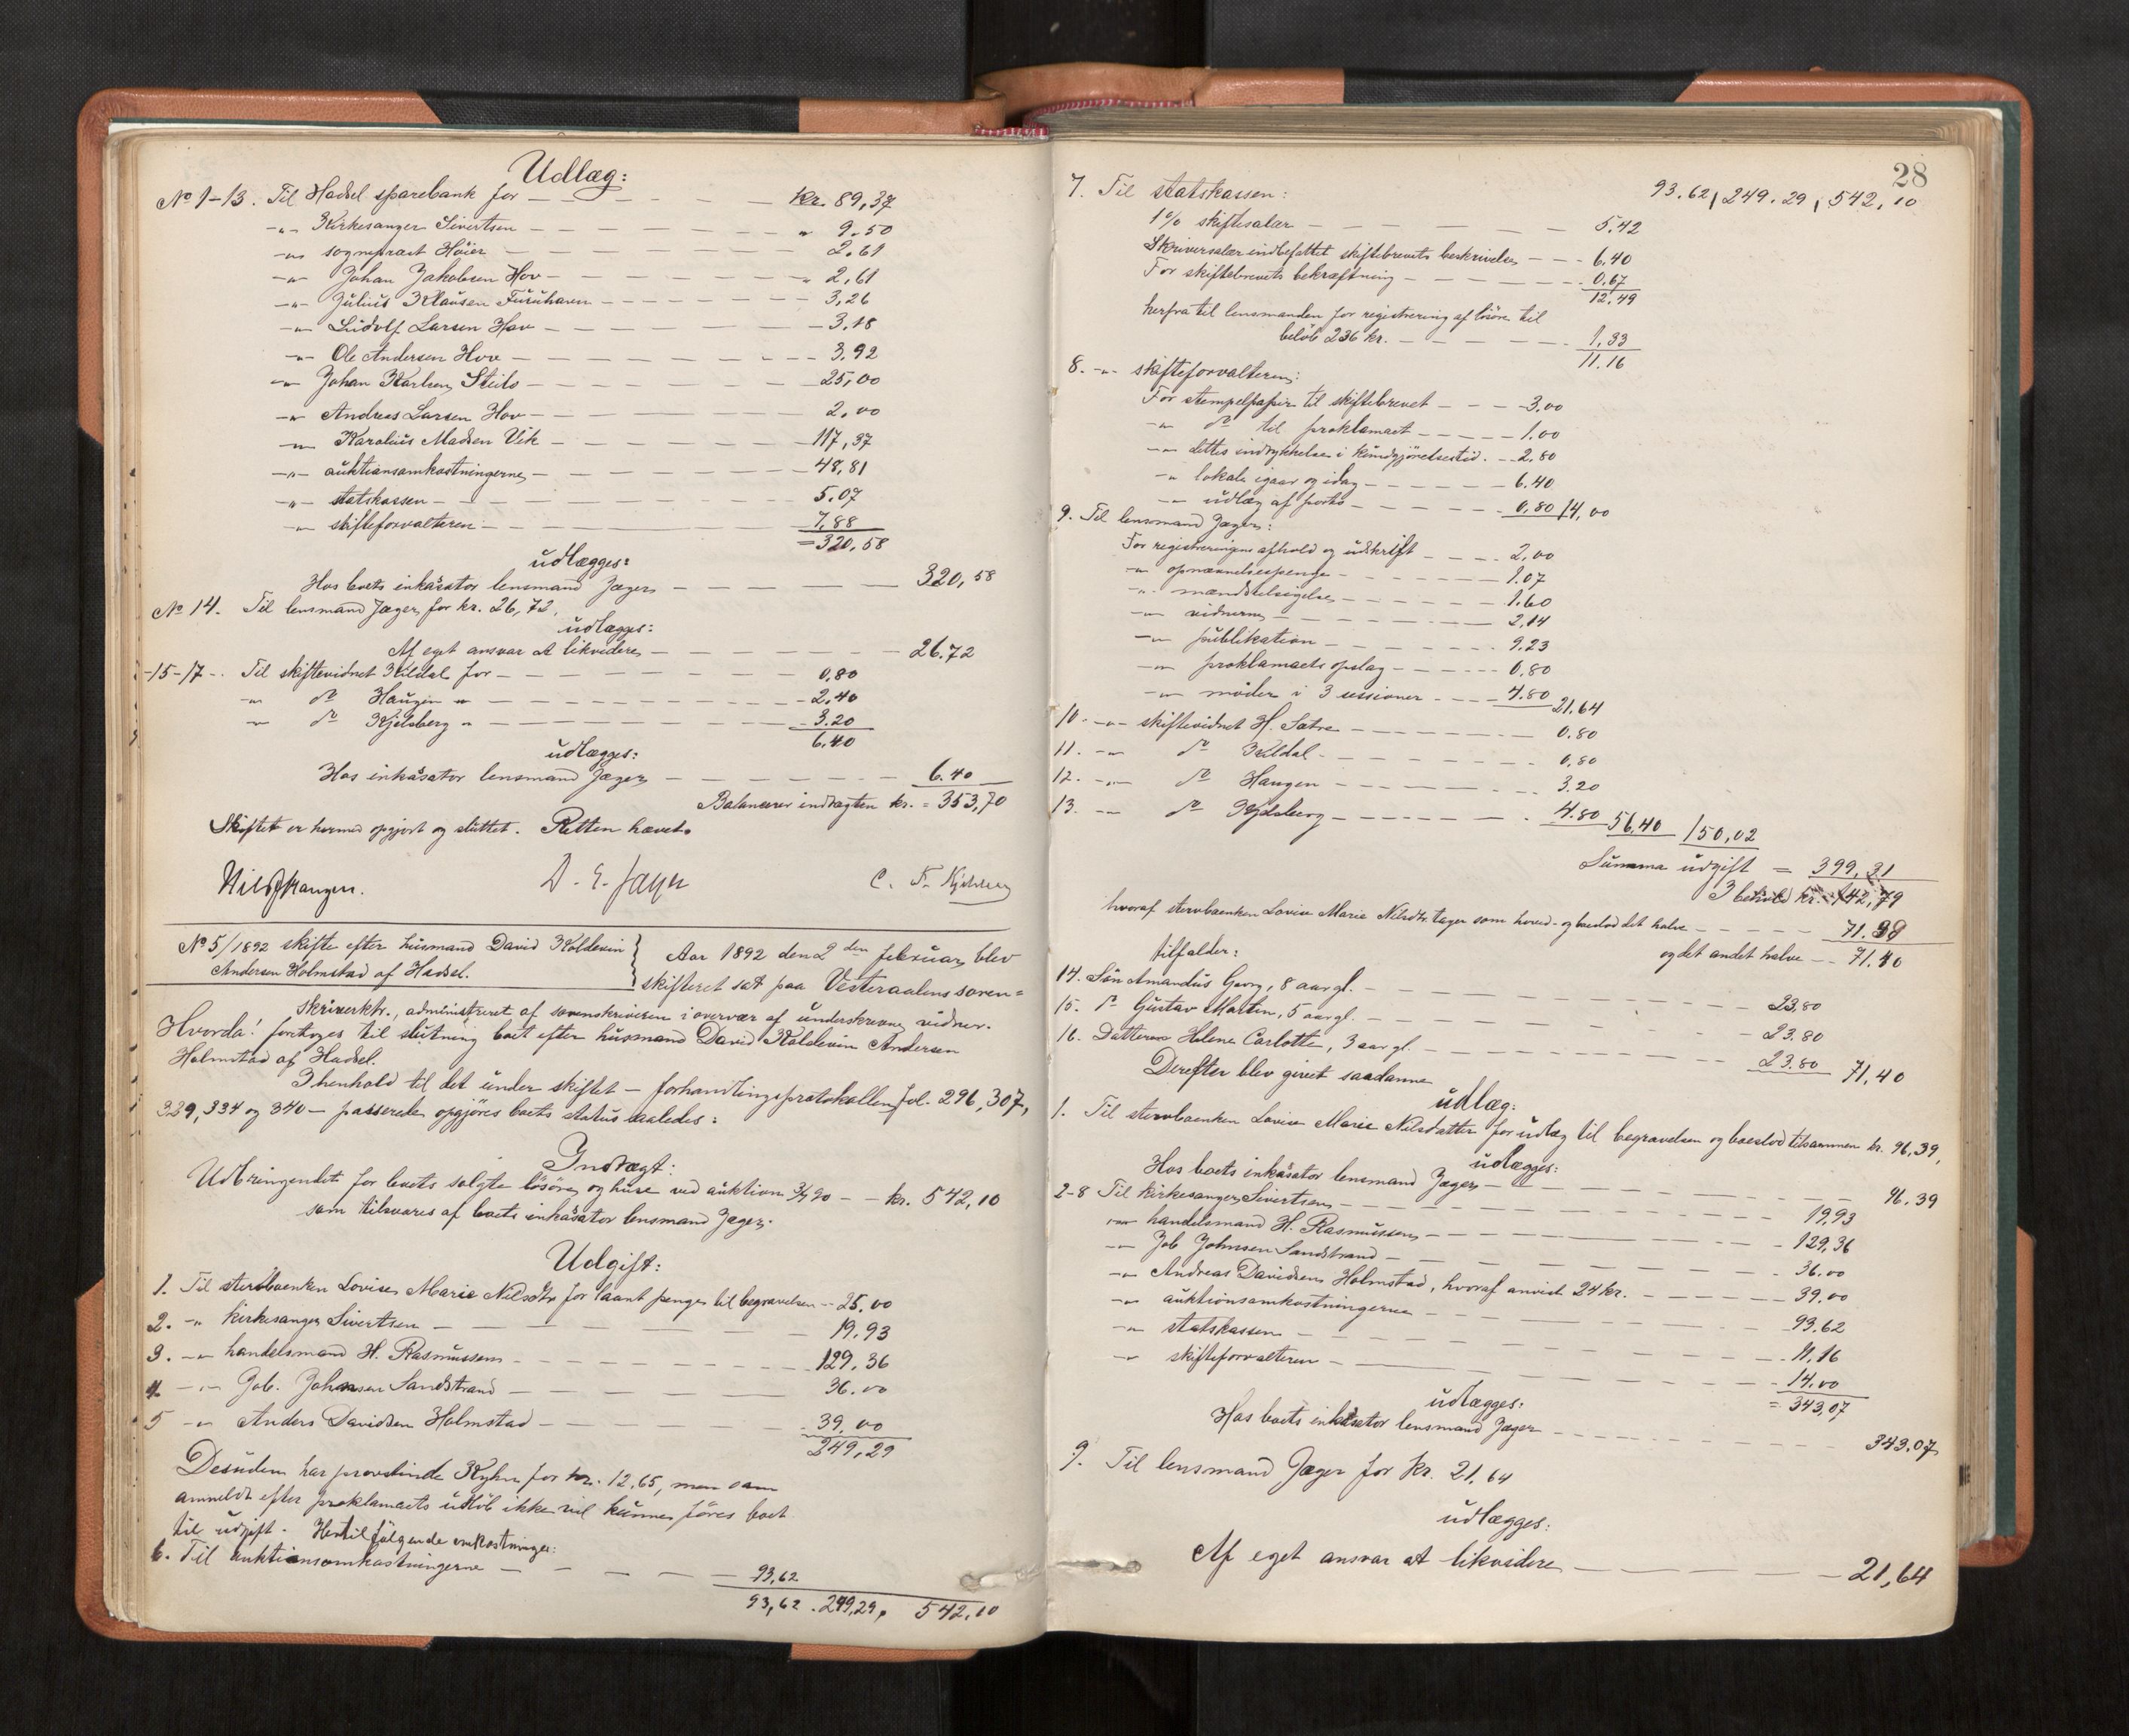 Udlæg:
No 1-13. Til Hadsel sparebank for — kr. 89,37
-"- Kirkesanger Sivertsen — " 9.50
-"- sognepræst Höier — 2.61
-"- Johan Jakobsen Hov — " 2,61
-"- Julius Klausen Furuhaven — 3,26
-"- Ludolf Larsen Hov — 3.18
-"- Ole Andersen Hov — 3.92
-"- Johan Karlsen Steilo — 25,00
-"- Andreas Larsen Hov — 2,00
-"- Karolius Madsen Vik — 117,37
-"- auktionsomkostningerne — 48,81
-"- statskassen — 5.07
-"- skifteforvalteren — 7,88
= 320,58
udlægges:
Hos boets inkasator lensmand Jæger — 320,58
No 14. Til lensmand Jæger for kr. 26,72,
udlægges:
Af eget ansvar at likvidere — 26.72
-15-17-. Til skiftevidnet Kildal for — 0,80
-"- do Haugen " — 2,40
-"- do Kjelsberg " — 3.20
6.40
udlægges:
Hos inkasator lensmand Jæger — 6.40
Balancerer indtægten kr. = 353,70
Skiftet er hermed opgjort og sluttet. Retten hævet.
Nils Haugen. D. E. Jæger C. F. Kjelsberg
No 5/1892 skifte efter husmand David Koldevin
Andersen Holmstad af Hadsel.
Aar 1892 den 2den februar blev
skifteret sat paa Vesteraalens soren=
skriverktr., administreret af sorenskriveren i overvær af underskrevne vidner.
Hvorda! foretoges til slutning boet efter husmand David Koldevin Andersen
Holmstad af Hadsel.
I henhold til det under skiftet — forhandlingsprotokollen fol. 296, 307,
329, 334 og 340 — passerede opgjöres boets status saaledes:
Indtægt:
Udbringendet for boets solgte lösöre og huse ved auktion 3/7 90 — kr. 542,10
som tilsvares af boets inkasator lensmand Jæger.
Udgift:
1. Til stervboenken Lovise Marie Nilsdtr for laant penge til begravelsen — 25.00
2. -"- kirkesanger Sivertsen — 19.93
3. -"- handelsmand H. Rasmussen — 129.36
4. -"- Job. Johnsen Sandstrand — 36.00
5 -"- Anders Davidsen Holmstad — 39,00
249,29
Desuden har provstinde Kyhn for kr. 12,65, men som
anmeldt efter proklamaets udlöb ikke vil kunne föres boet
til udgift. Hertil fölgende omkostninger:
6. Til auktionsomkostningerne — 93,62
93,62. 249,29, 542.10
28
93.62, 249.29, 542,10
7. Til statskassen:
1% skiftesalær — 5.42
Skriversalær indbefattet skiftebrevets beskrivelse — 6.40
For skiftebrevets bekræftning — 0.67
12.49
herfra til lensmanden for registrering af lösöre til
belöb 236 kr. — 1,33
11.16
8. -"- skifteforvalteren:
For stempelpapir til skiftebrevet — 3.00
-"- do til proklamaet — 1.00
-"- dettes indrykkelse i kundgjörelsestid. — 2.80
-"- lokale igaar og idag — 6.40
-"- udlæg af porto — 0,80 14,00
9. Til lensmand Jæger:
For registreringens afhold og udskrift — 2,00
-"- opnævnelsespenge — 1.07
-"- mændstilsigelse — 1.60
-"- vidnerne — 2,14
-"- publikation — 9.23
-"- proklamaets opslag — 0,80
-"- möder i 3 sessioner — 4.80 21.64
10. -"- skiftevidnet H. Satre — 0.80
11. -"- do Kildal — 0,80
12. -"- do Haugen — 3.20
13. -"- do Kjelsberg — 4.80 56,40 150,02
Summa udgift = 399,31
I behold kr. 142,79
hvoraf stervboenken Lovise Marie Nilsdtr. tager som hoved- og boeslod det halve — 71.39
og det andet halve — 71.40
tilfalder:
14. Sön Amandus Georg, 8 aar gl. — 23,80
15. do Gustav Martin, 5 aar gl. — 23.80
16. Datteren Helene Carlotte, 3 aar gl. — 23.80 71,40
Derefter blev givet saadanne
udlæg:
1. Til stervboenken Lovise Marie Nilsdatter for udlæg til begravelsen og boeslod tilsammen kr. 96,39,
udlægges:
Hos boets inkasator lensmand Jæger — 96.39
2-8 Til kirkesanger Sivertsen — 19,93
-"- handelsmand H. Rasmussen — 129,36
-"- Job Johnsen Sandstrand — 36.00
-"- Andreas Davidsen Holmstad, hvoraf anvist 24 kr. — 39.00
-"- auktionsomkostningerne — 93.62
-"- statskassen — 11,16
-"- skifteforvalteren — 14.00
= 343,07
udlægges:
Hos boets inkasator lensmand Jæger — 343.07
9. Til lensmand Jæger for kr. 21,64
udlægges:
Af eget ansvar at likvidere — 21,64